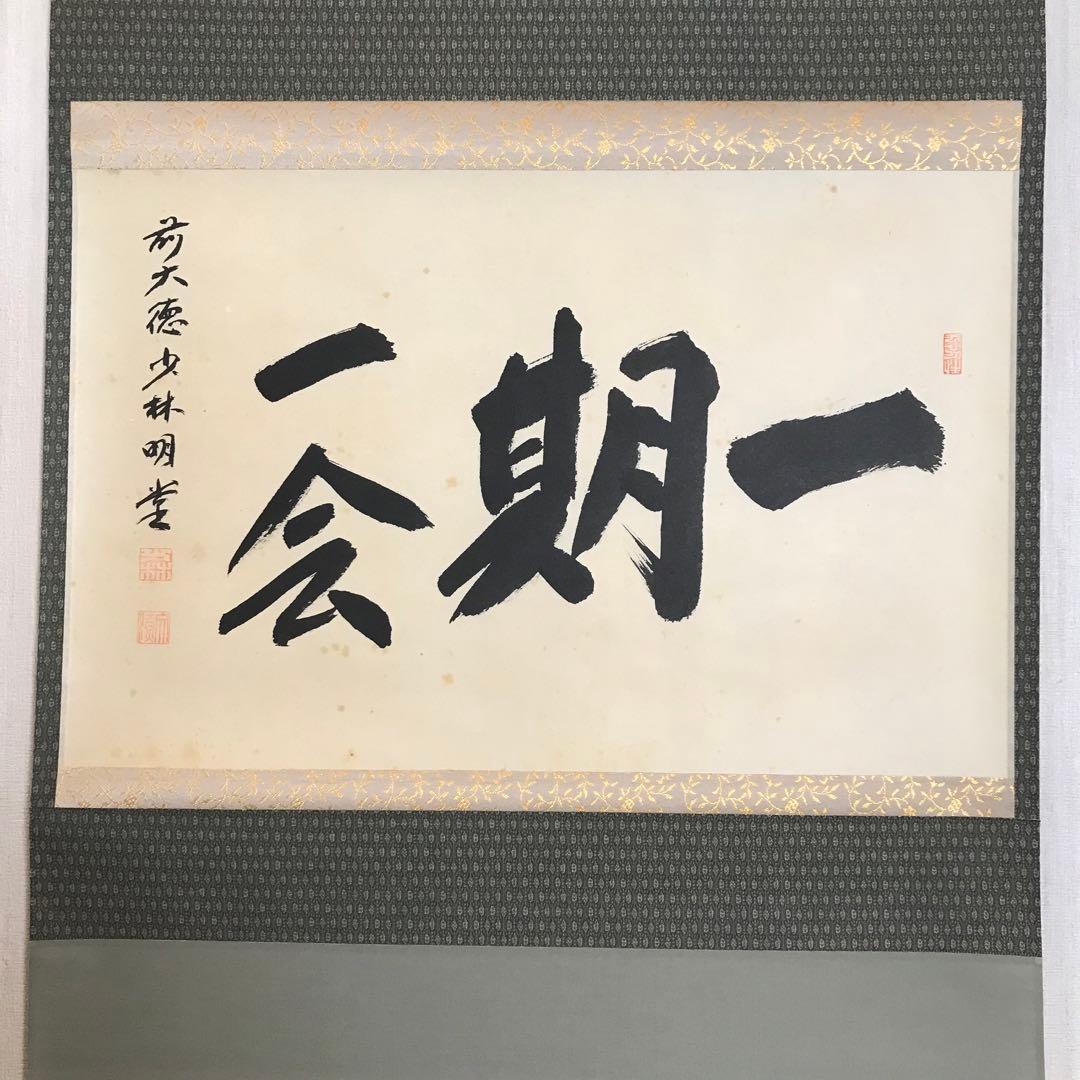 一期一会
前大徳少林明堂